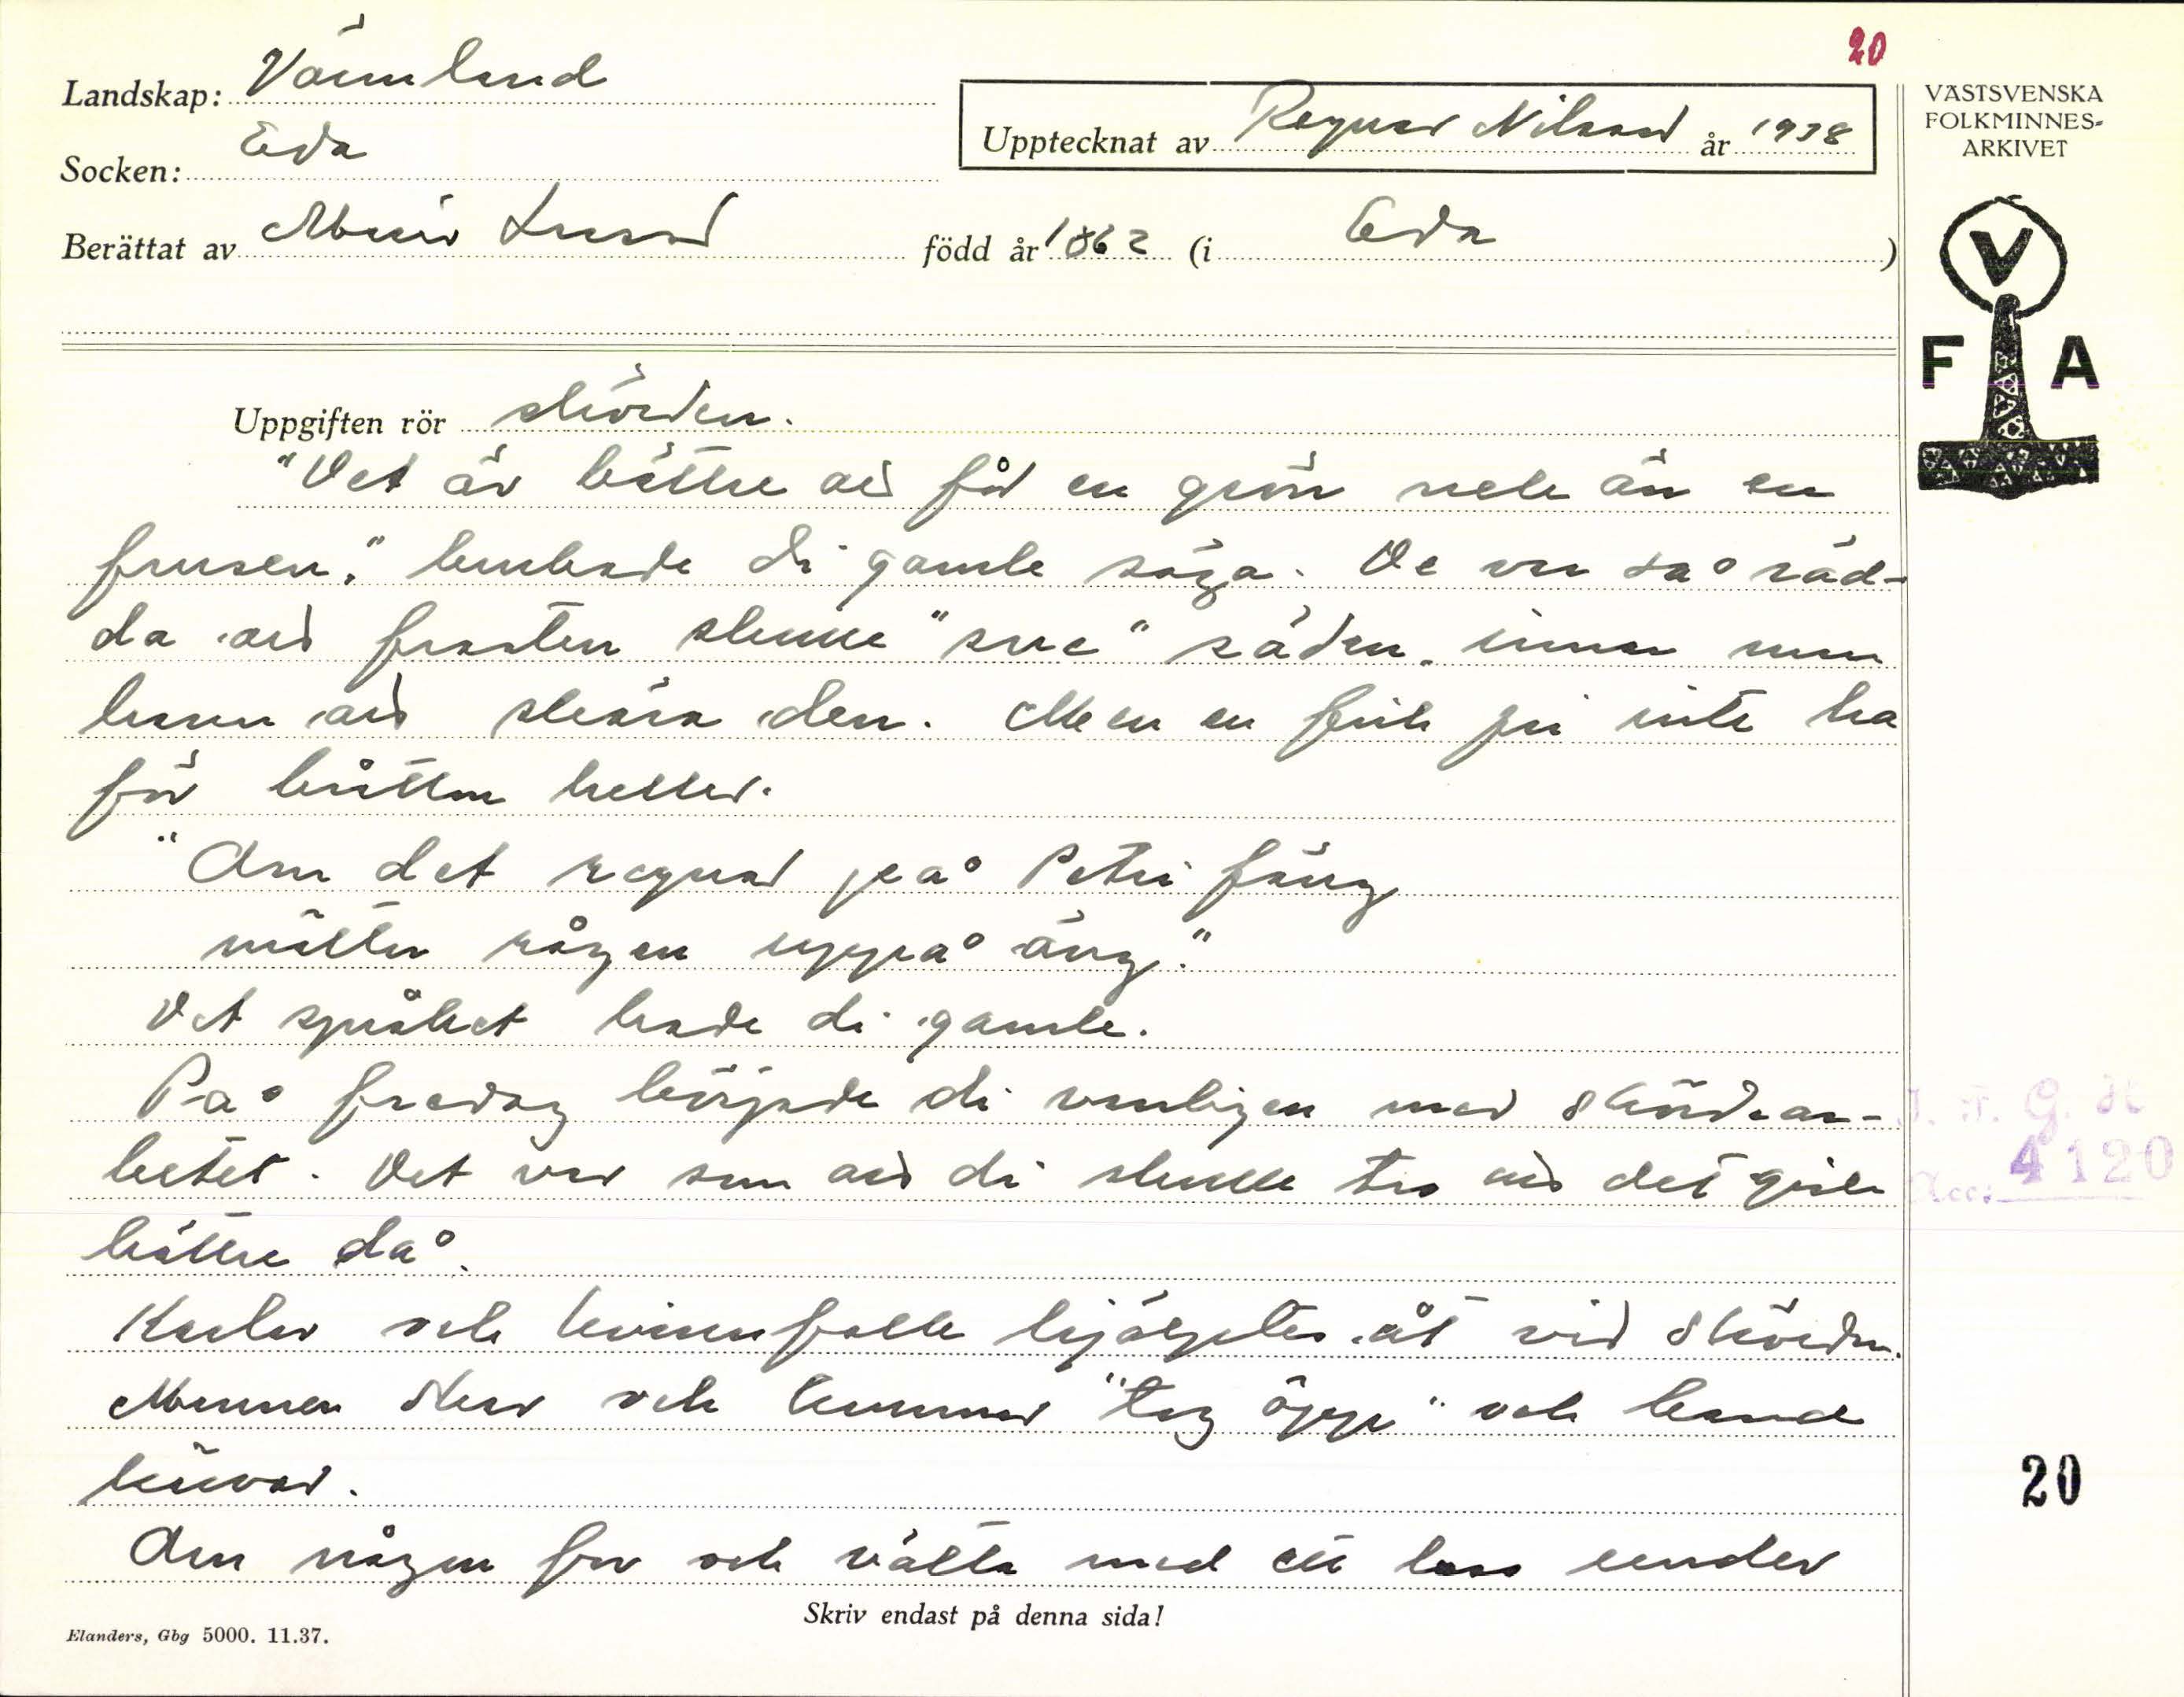 20
Landskap: Värmland
Upptecknat av Ragnar Nilsson år 1938
VÄSTSVENSKA
FOLKMINNES-
ARKIVET
Socken: Eda
Berättat av Lund född år 1862 (i Eda)
V
F A
Uppgiften rör skörden.
"Det är bättre att få en grön neke än en
frusen", brukade di gamle säga. De var så räd-
da att frosten skulle "sve" säden innan man
hann att skära den. Men en fick gi inte ha
för bråttom heller.
"Om det regnar på Petri fäng
mältar rågen uppå äng."
Det språket hade di gamle.
På fredag började di vanligen med skördear-
betet. Det var som att di skulle tro att det gick
bättre då.
Karlar och kvinnfolk hjälptes åt vid skörden.
Männen skar och kvinnor "tog öpp" och band
kärvar.
Om någon for och välta med ett lass under
I. F. G. H
Acc: 4120
20
Skriv endast på denna sida!
Elanders, Gbg 5000. 11.37.